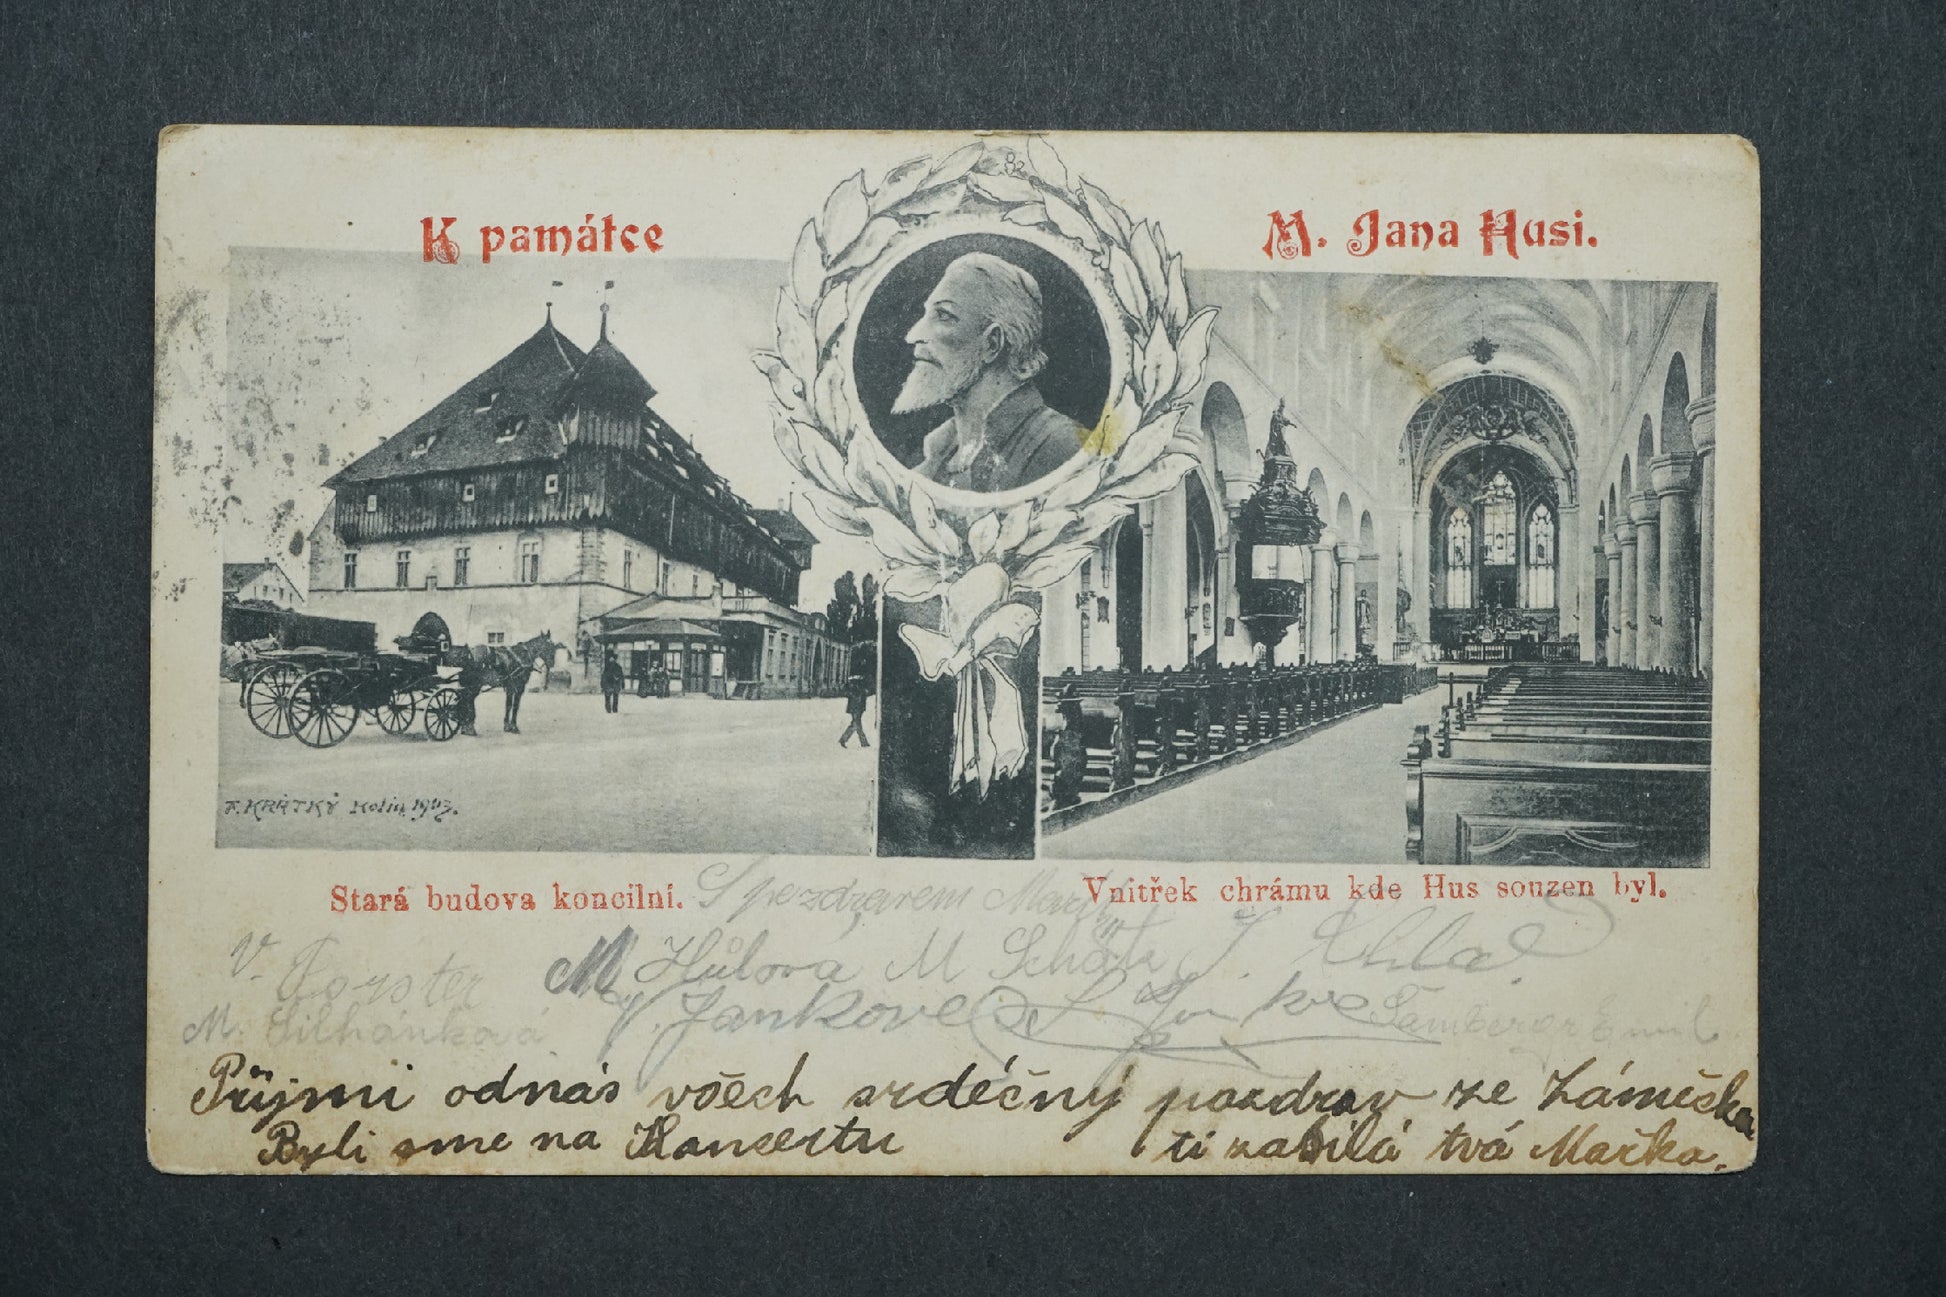 K památce
M. Jana Husi.
82
F. KRÁTKÝ Kolín 1903.
Stará budova koncilní.
Vnitřek chrámu kde Hus souzen byl.
S pozdravem
V. Forster M Hůlova M
M. Silhánková Jankovec Šamberger Emil
Přijmi odnás všech srdéčný pozdrav ze Zámečka
Byli sme na Konsertu ti zabilá tvá Mařka.